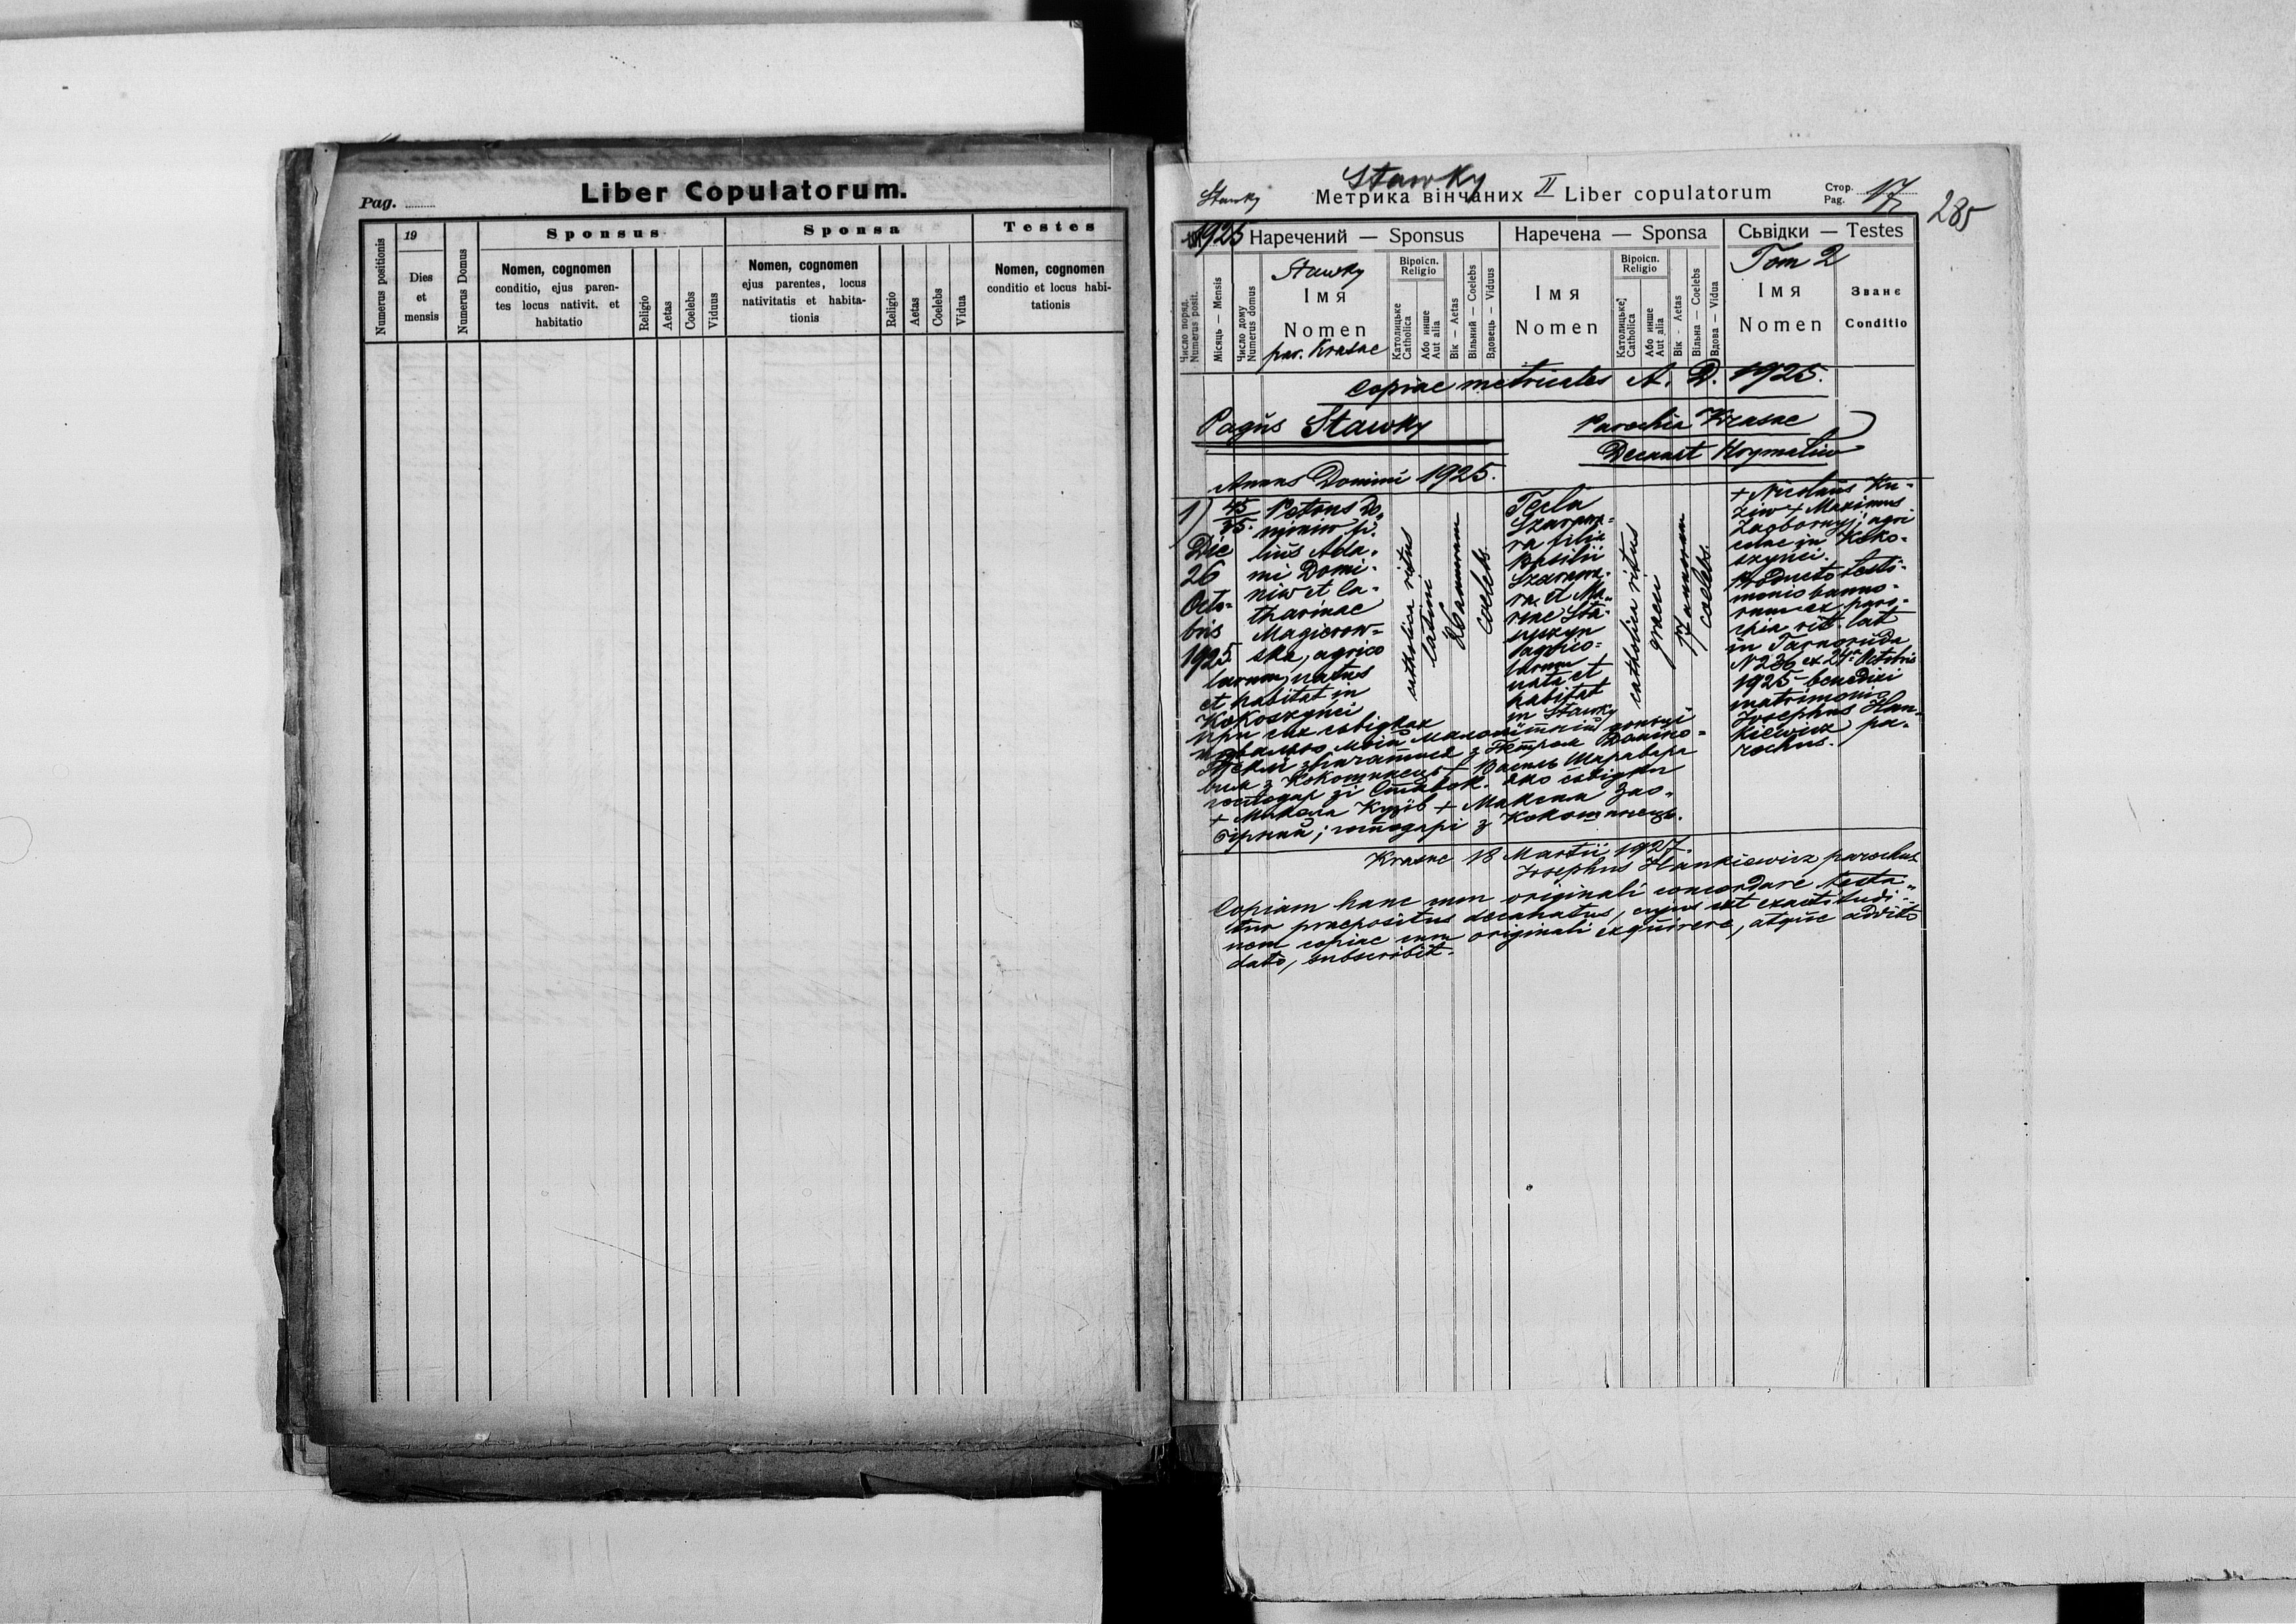 Pag.
Liber Copulatorum.
Numerus positionis
19
Dies
et
mensis
Numerus Domus
Sponsus
Nomen, cognomen
conditio, ejus paren-
tes locus nativit. et
habitatio
Religio
Aetas
Coelebs
Viduus
Sponsa
Nomen, cognomen
ejus parentes, locus
nativitatis et habita-
tionis
Religio
Aetas
Coelebs
Vidua
Testes
Nomen, cognomen
conditio et locus habi-
tationis
Stawky
Stawky
Метрика вінчаних II Liber copulatorum
Стор.
Pag.
17
285
1925
Наречений — Sponsus
Наречена — Sponsa
Сьвідки — Testes
Число поряд.
Numerus posit.
Місяць — Mensis
Число дому
Numerus domus
Stawky
Імя
Nomen
par. Krasne
Віроісп.
Religio
Католицьке
Catholica
Або инше
Aut alia
Вік — Aetas
Вільний — Coelebs
Вдовець — Viduus
Імя
Nomen
Віроісп.
Religio
Католицьке
Catholica
Або инше
Aut alia
Вік - Aetas
Вільна — Coelebs
Вдова — Vidua
Tom 2
Імя
Nomen
Званє
Conditio
Copiae metricales A. D. 1925.
Pagus Stawky
Parochia Krasne
Decanat Hrymaliw
Annus Domini 1925.
1)
Die
26
Octo-
bris
1925
Petrus Do-
miniw fi-
lius Ada-
mi Domi-
niw et Ca-
tharinae
Magierow-
ska, agrico
larum, natus
et habitat in
Kokoszynci
catholica ritus
latini
26 annorum
coelebs.
Tecla
Szarawa-
ra filia
Basilii
Szarawa-
ra et Ma-
riae
agrico-
larum
nata et
habitat
in Stawky
catholica ritus
graeci
17 annorum
coelebs.
+ Nicolaus Ku-
ziw + Maximus
Zaoborny; agri
colae in Koko-
szynci.
Producto testi-
monio banno-
rum ex paro-
chia rit. lat
in Tarnoruda
N 236 ex 24 Octobris
1925 benedixi
matrimonio
Josephus Han-
kiewicz pa-
rochus.
при сих свідках
позваляю моїй малолітній доньці
Теклі звінчатися з Петром Доміно-
вим з Кокошинець + Василь Шаравара
господар зі Ставок. Яко свідки
+ Микола Кузів + Максим Зао-
бірний; господарі з Кокошинець.
Krasne 18 Martii 1927.
Josephus Hankiewicz parochus
Copiam hanc cum originali concordare testa-
tur praepositus decanatus, cujus est exactitudi-
nem copiae cum originali exquirere, atque addito
dato, subscribit.